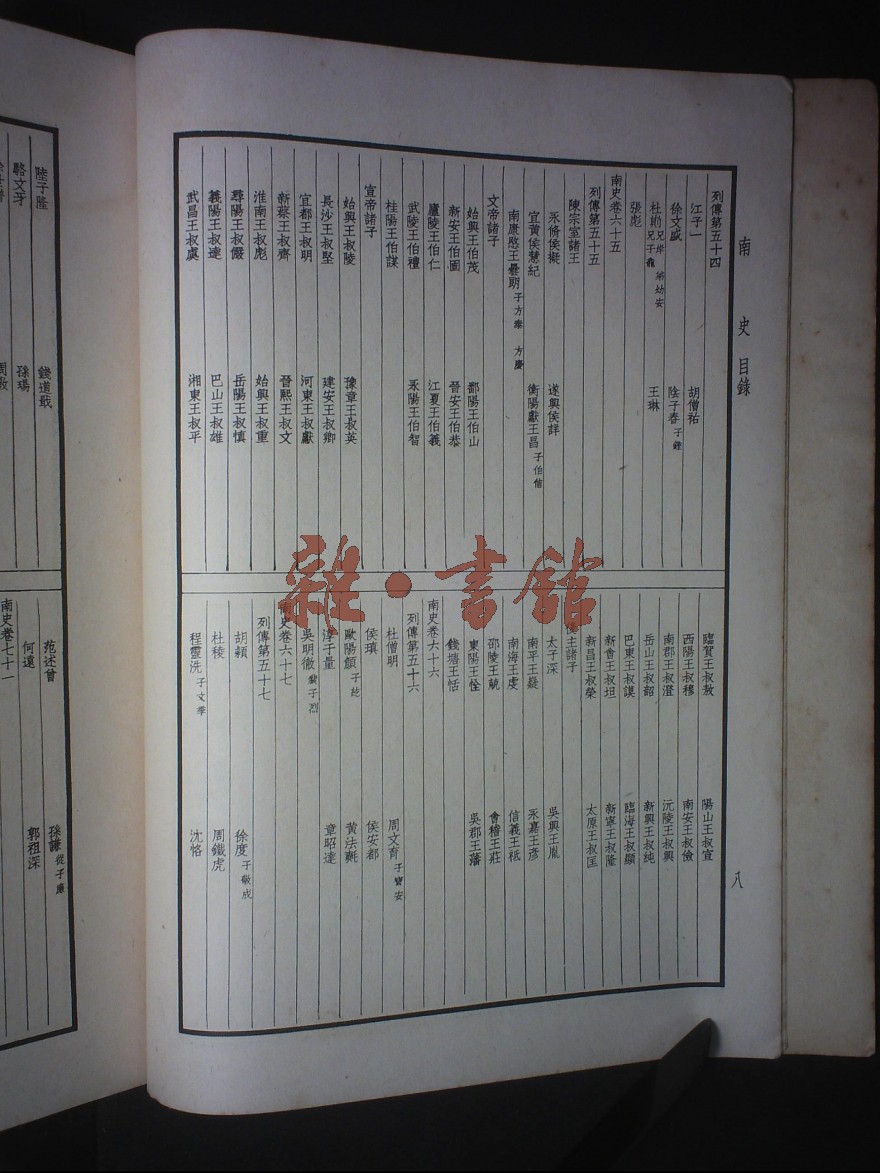 南史目錄
八
列傳第五十四
江子一
胡僧祐
徐文盛
陰子春 子鏗
杜崱 兄岸 弟幼安 兄子龕
王琳
張彪
南史卷六十五
列傳第五十五
陳宗室諸王
永脩侯擬
遂興侯詳
宜黃侯慧紀
衡陽獻王昌 子伯信
南康愍王曇朗 子方泰 方慶
文帝諸子
始興王伯茂
鄱陽王伯山
新安王伯固
晉安王伯恭
廬陵王伯仁
江夏王伯義
武陵王伯禮
永陽王伯智
桂陽王伯謀
宣帝諸子
始興王叔陵
豫章王叔英
長沙王叔堅
建安王叔卿
宜都王叔明
河東王叔獻
新蔡王叔齊
晉熙王叔文
淮南王叔彪
始興王叔重
尋陽王叔儼
岳陽王叔慎
義陽王叔達
巴山王叔雄
武昌王叔虞
湘東王叔平
臨賀王叔敖
陽山王叔宣
西陽王叔穆
南安王叔儉
南郡王叔澄
沅陵王叔興
岳山王叔韶
新興王叔純
巴東王叔謨
臨海王叔顯
新會王叔坦
新寧王叔隆
新昌王叔榮
太原王叔匡
後主諸子
太子深
吳興王胤
南平王嶷
永嘉王彥
南海王虔
信義王祗
邵陵王兢
會稽王莊
東陽王恮
吳郡王藩
錢塘王恬
南史卷六十六
列傳第五十六
杜僧明
周文育 子寶安
侯瑱
侯安都
歐陽頠 子紇
黃法𣰰
淳于量
章昭達
吳明徹 裴子烈
南史卷六十七
列傳第五十七
胡穎
徐度 子敬成
杜稜
周鐵虎
程靈洗 子文季
沈恪
陸子隆
錢道戢
駱文牙
孫瑒
范述曾
孫謙 從子廉
何遠
郭祖深
南史卷七十一
雜·書館